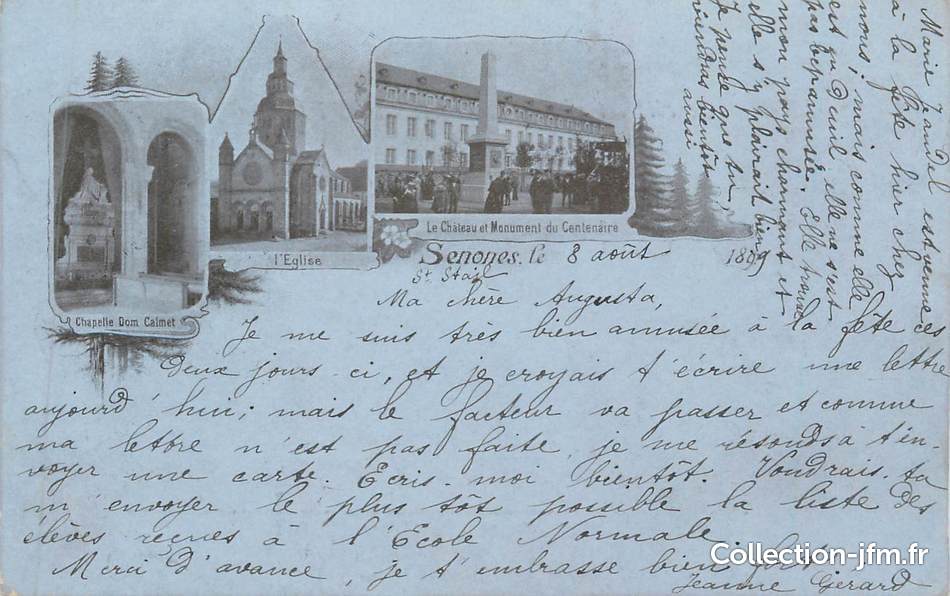 Chapelle Dom Calmet
l'Eglise
Le Château et Monument du Centenaire
Senones, le 8 août 1899
St Stail
Ma chère Augusta,
Je me suis très bien amusée à la fête ces
deux jours-ci, et je croyais t'écrire une lettre
aujourd'hui; mais le facteur va passer et comme
ma lettre n'est pas faite, je me résouds à t'en-
voyer une carte. Ecris-moi bientôt. Voudrais-tu
m'envoyer le plus tôt possible la liste des
élèves reçues à l'Ecole Normale.
Merci d'avance, je t'embrasse bien fort.
Jeanne Gérard
Marie Jeandel est venue
à la fête hier chez
nous; mais comme elle
est en deuil, elle ne s'est
pas bep amusée. Elle trouve
mon pays charmant et
elle s'y plairait bien.
Je pense que tu
viendras bientôt
aussi
Collection-jfm.fr